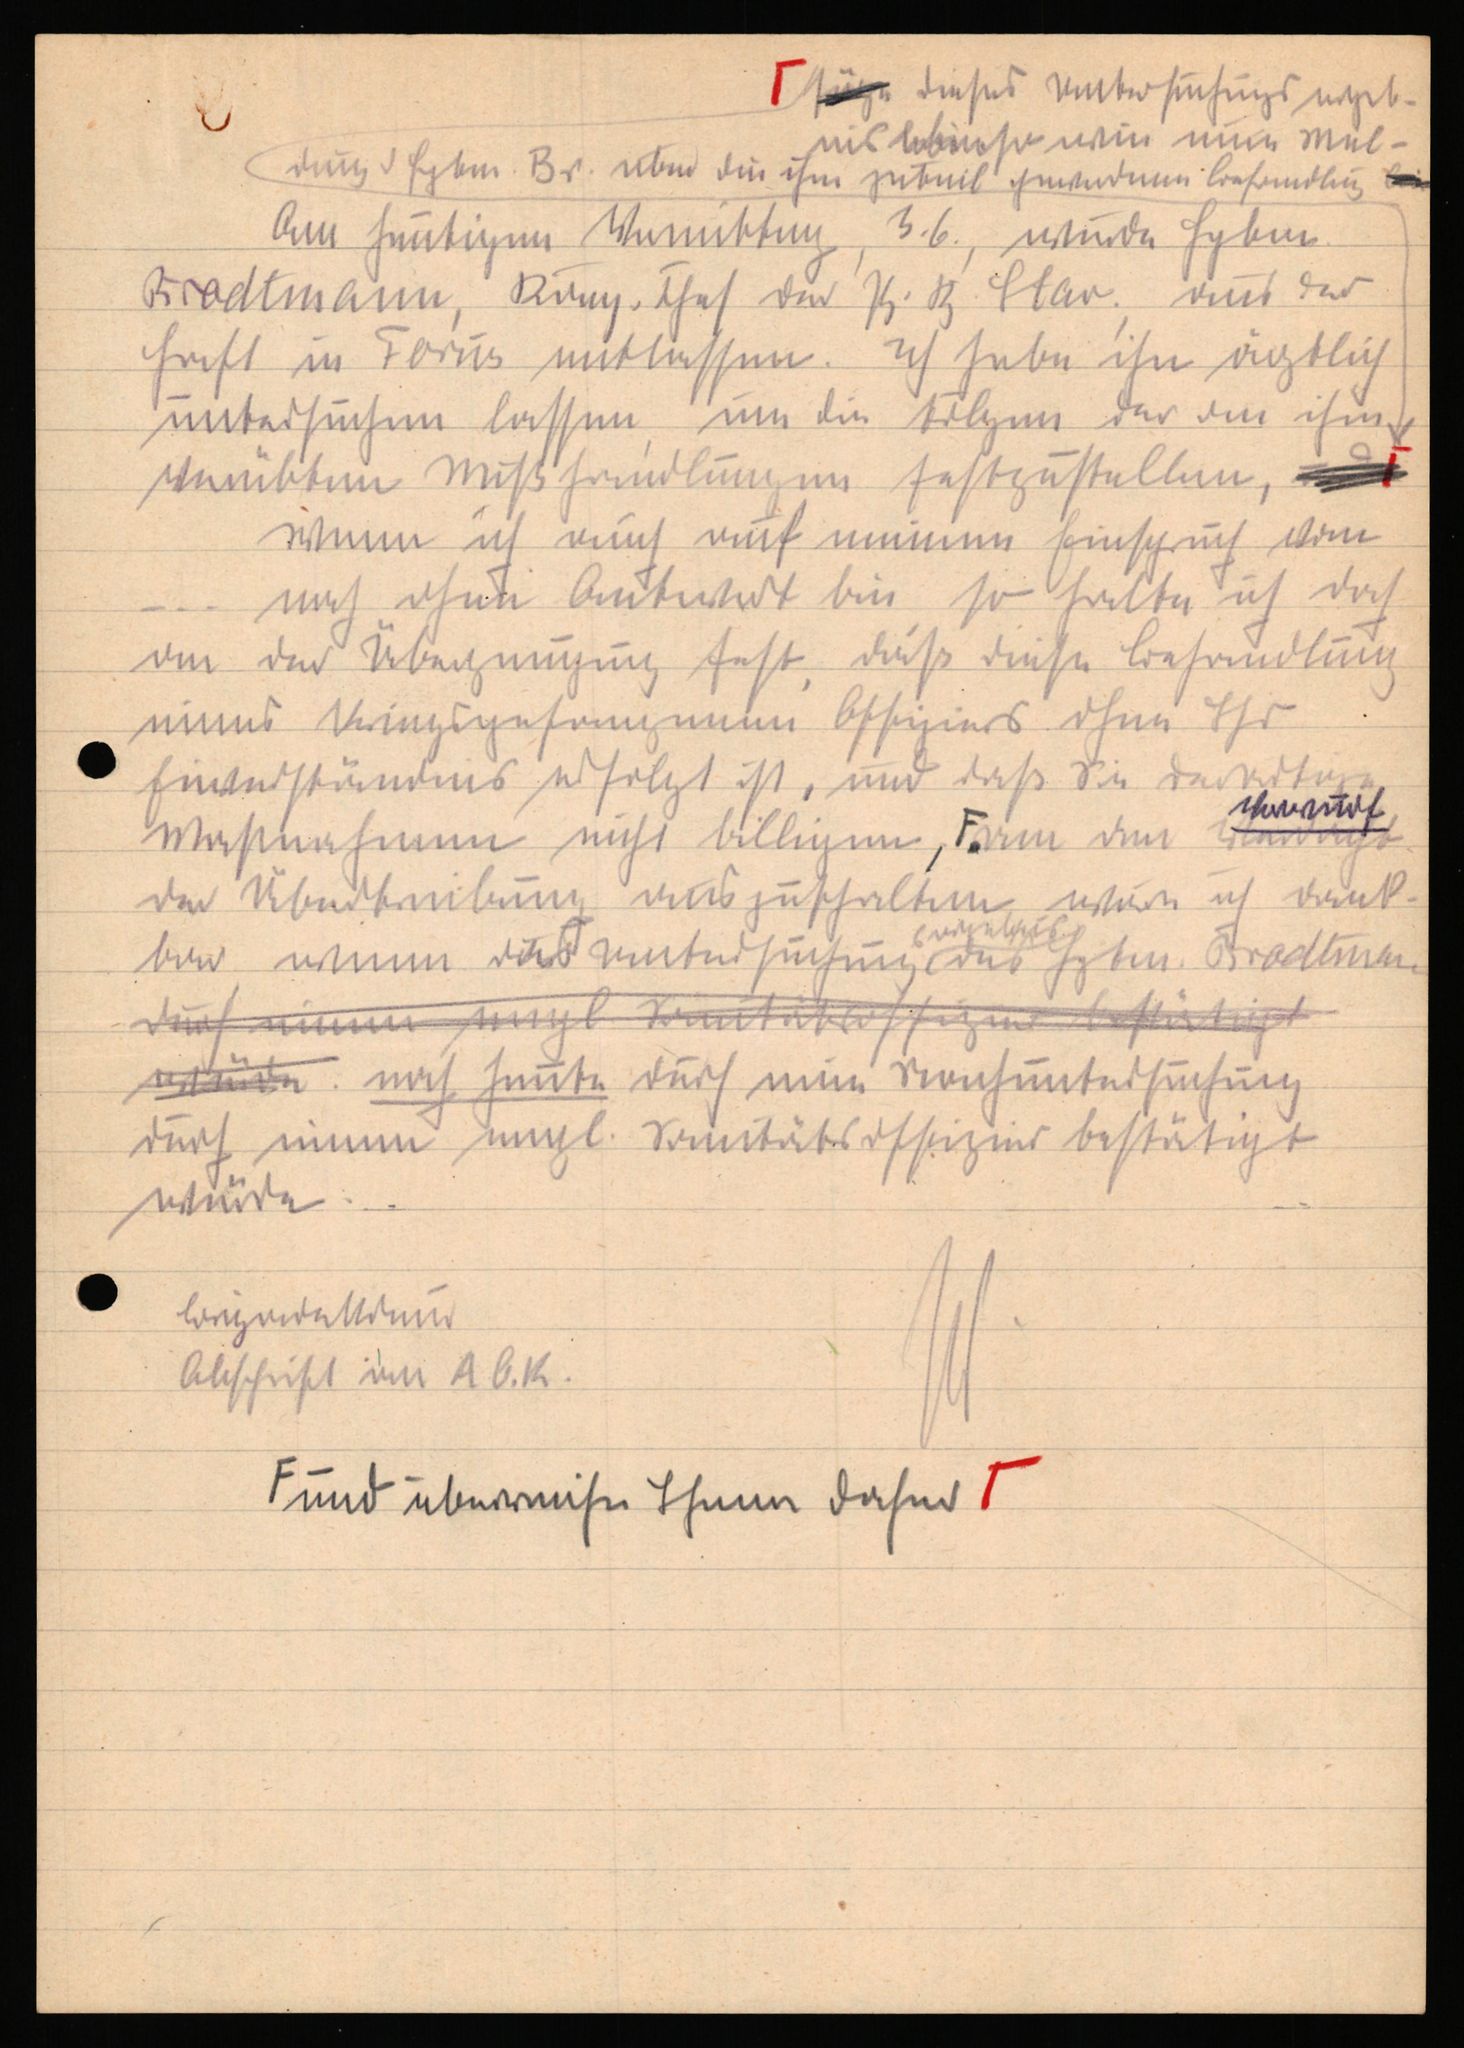 Γ füge dieses Untersuchungsergeb-
nis ebenso wie eine Mel-
dung d. Hptm. Br. über die ihm zuteil gewordene Behandlung bei
Am heutigen Vormittag, 3.6., wurde Hptm.
Brodtmann, Komp. Chef der Stav., aus der
Haft in Forus entlassen. Ich habe ihn ärztlich
untersuchen lassen, um die Folgen der an ihm
verübten Mißhandlungen festzustellen, und Γ
Wenn ich auch auf meinen Einspruch vom
--- noch ohne Antwort bin so halte ich doch
an der Überzeugung fest, daß diese Behandlung
eines kriegsgefangenen Offiziers ohne Ihr
Einverständnis erfolgt ist, und daß Sie derartige
Vorwurf
Maßnahmen nicht billigen, F um den Verdacht
der Übertreibung auszuschalten, wäre ich dank-
ergebnis
bar wenn das Untersuchungs des Hptm. Brodtmann
durch einen engl. Sanitätsoffizier bestätigt
würde. noch heute durch eine Nachuntersuchung
durch einen engl. Sanitätsoffizier bestätigt
würde. --
Abschrift an A.O.K.
F und überweise Ihnen daher Γ